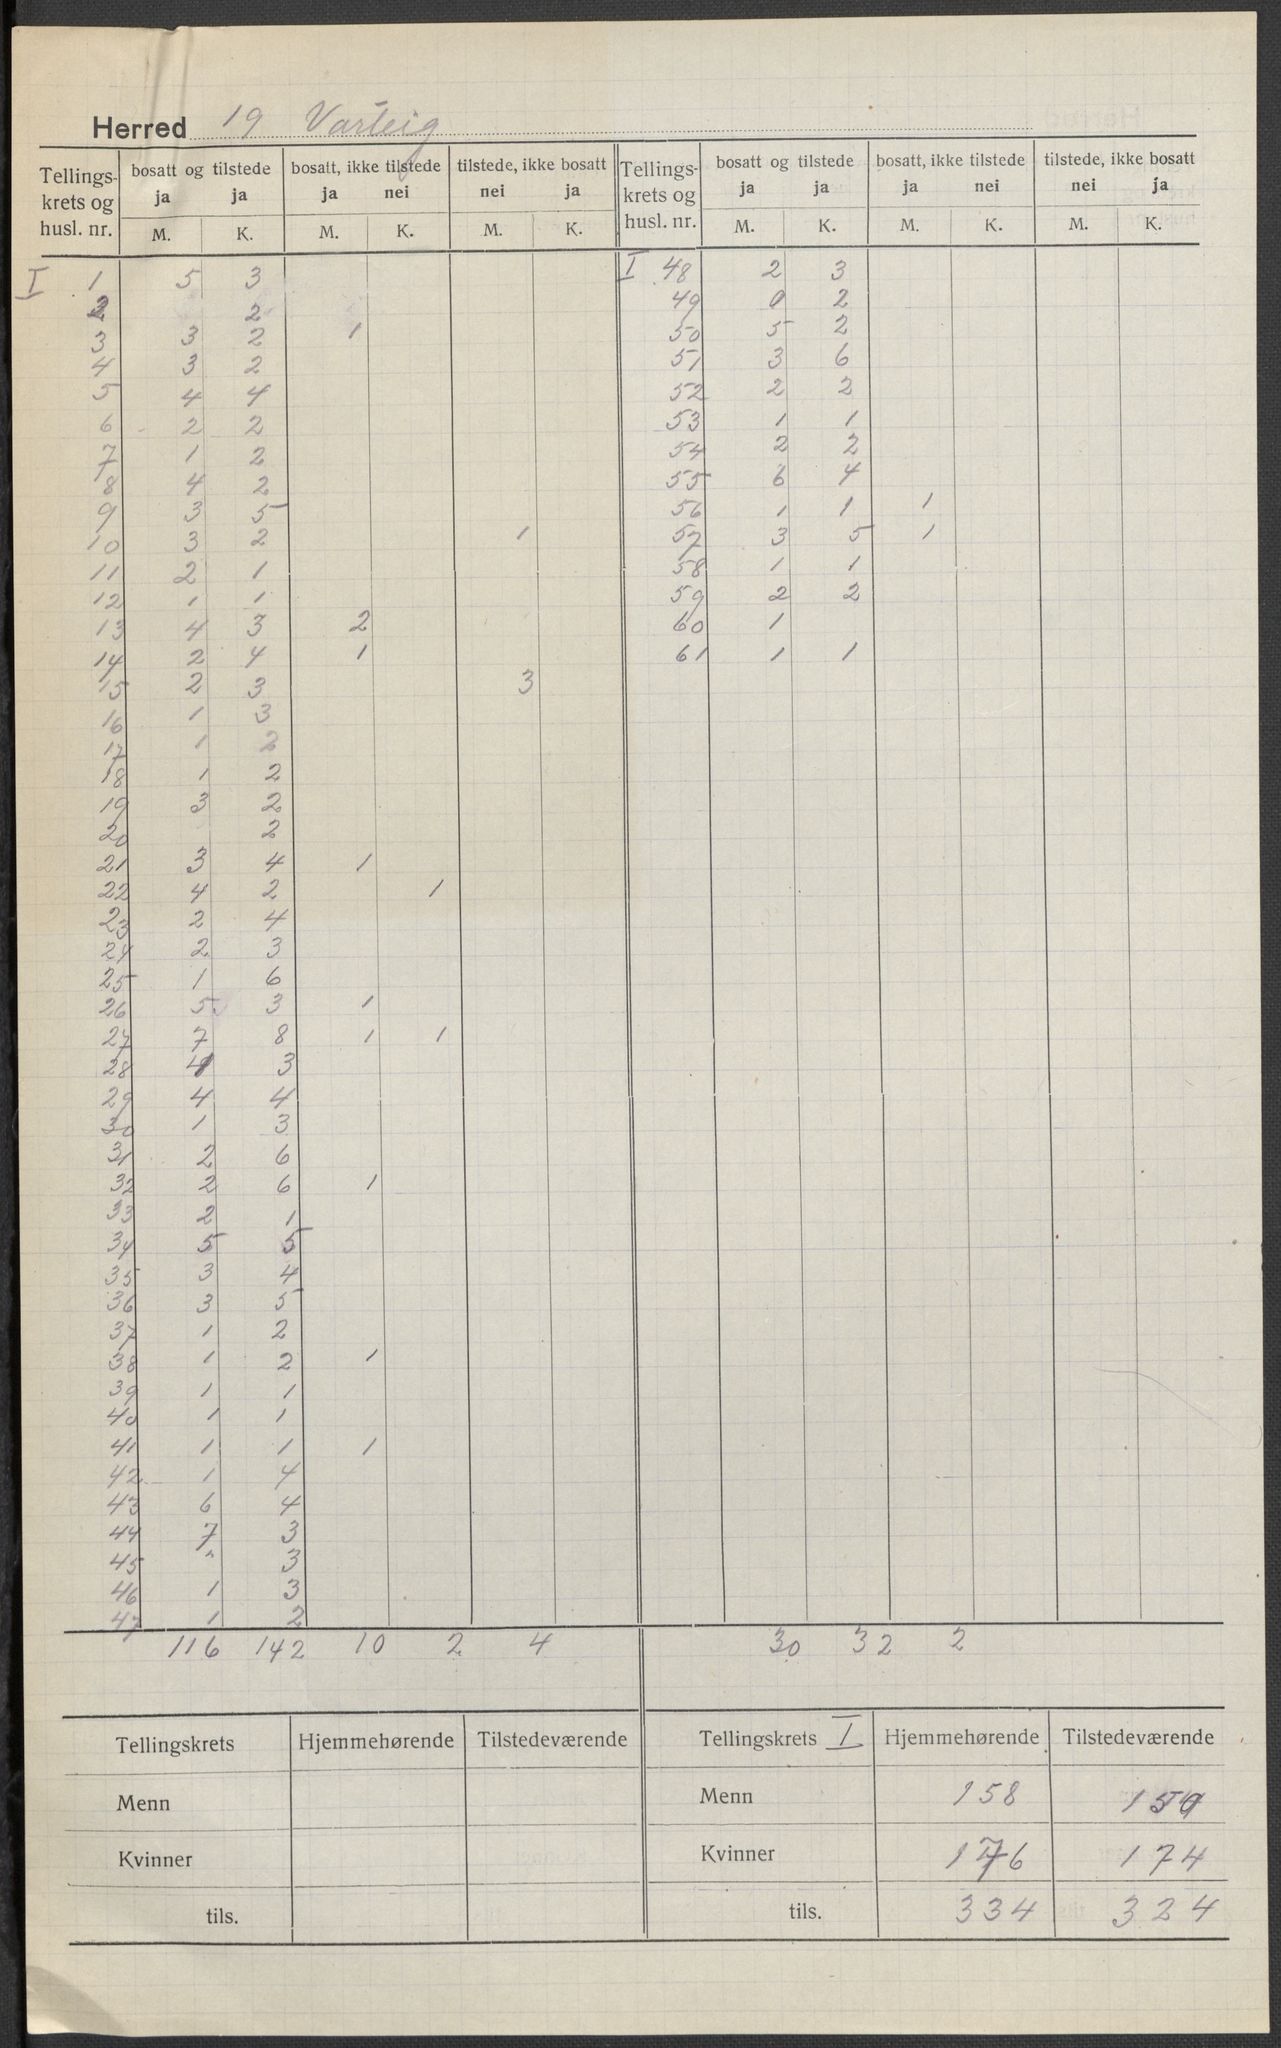 Herred 19 Varteig
Tellings-krets og husl. nr. | bosatt og tilstede ja ja | bosatt, ikke tilstede ja nei | tilstede, ikke bosatt nei ja | Tellings-krets og husl. nr. | bosatt og tilstede ja ja | bosatt, ikke tilstede ja nei | tilstede, ikke bosatt nei ja
M. K. M. K. M. K. M. K. M. K. M. K.
I 1 5 3
2 2
3 3 2 1
4 3 2
5 4 4
6 2 2
7 1 2
8 4 2
9 3 5
10 3 2 1
11 2 1
12 1 1
13 4 3 2
14 2 4 1
15 2 3 3
16 1 3
17 1 2
18 1 2
19 3 2
20 2
21 3 4 1
22 4 2 1
23 2 4
24 2 3
25 1 6
26 5 3 1
27 7 8 1 1
28 3
29 4 4
30 1 3
31 2 6
32 2 6 1
33 2 1
34 5 5
35 3 4
36 3 5
37 1 2
38 1 2 1
39 1 1
40 1 1
41 1 1 1
42 1 4
43 6 4
44 7 3
45 " 3
46 1 3
47 1 2
116 142 10 2 4
I 48 2 3
49 0 2
50 5 2
51 3 6
52 2 2
53 1 1
54 2 2
55 6 4
56 1 1 1
57 3 5 1
58 1 1
59 2 2
60 1
61 1 1
30 32 2
Tellingskrets Hjemmehørende Tilstedeværende
Menn
Kvinner
tils.
Tellingskrets I Hjemmehørende Tilstedeværende
Menn 158 150
Kvinner 176 174
tils. 334 324